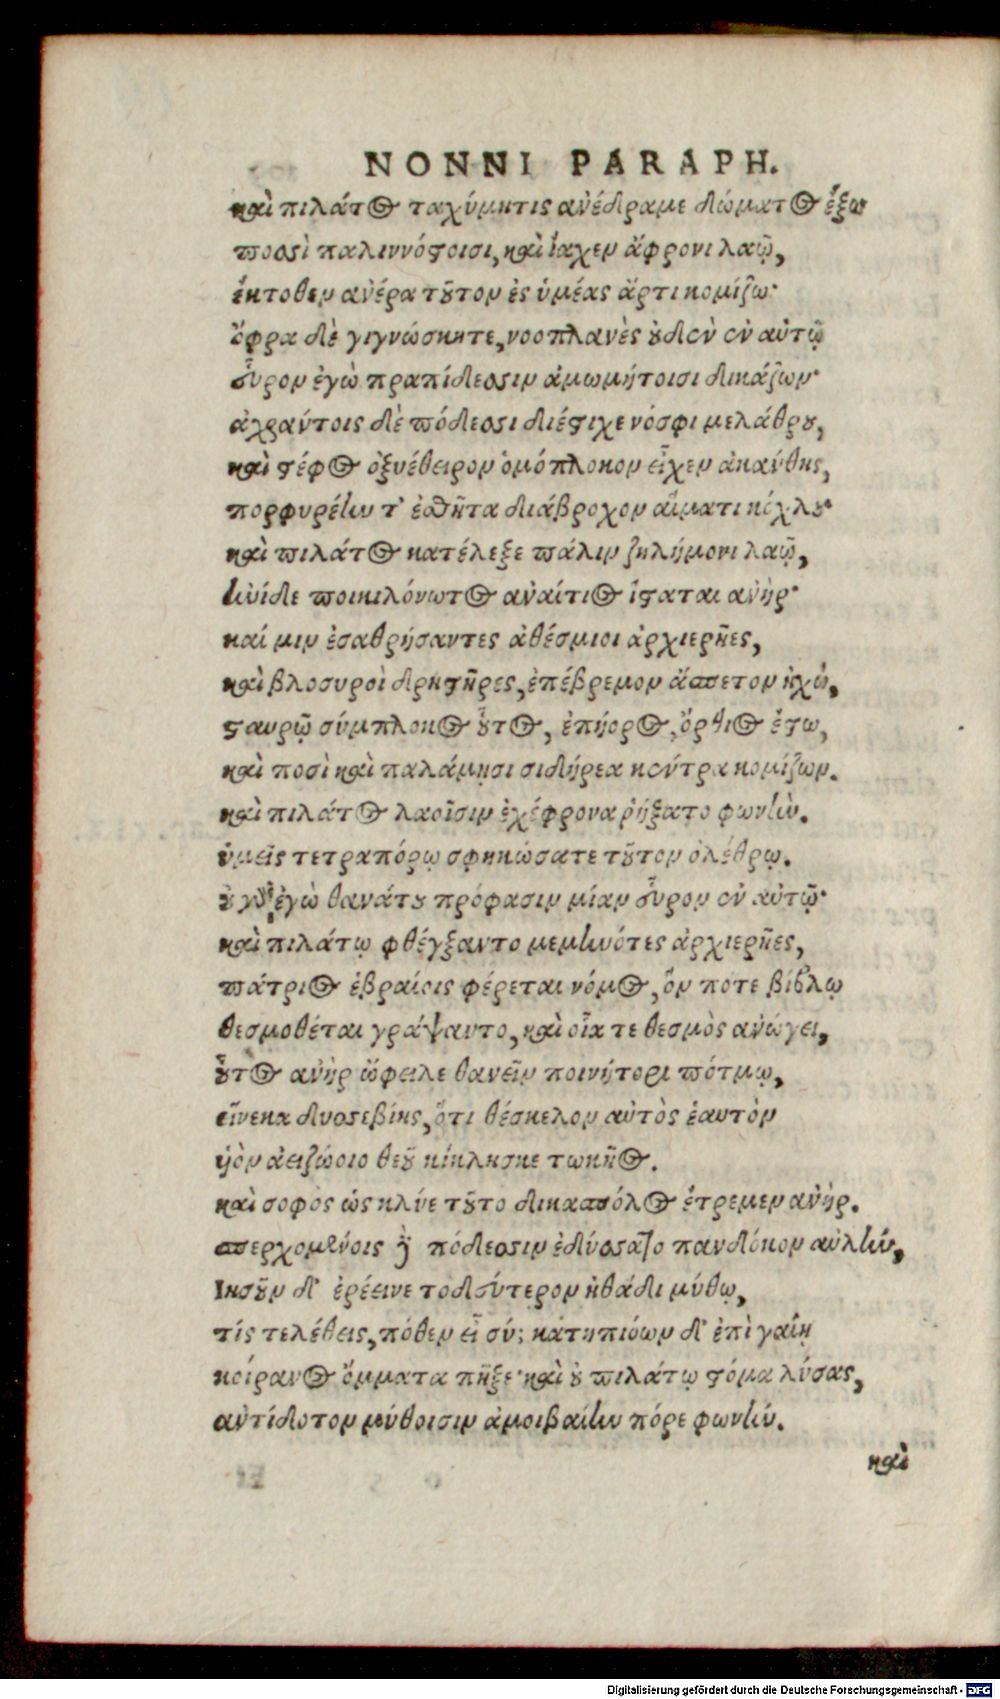 NONNI PARAPH.
καὶ πιλάτος ταχύμητις ἀνέδραμε δώματος ἔξω
ποσσὶ παλιννόστοισι, καὶ ἴαχεν ἄφρονι λαῷ,
ἔκτοθεν ἀνέρα τοῦτον ἐς ὑμέας ἄρτι κομίζω·
ὄφρα δὲ γιγνώσκητε, νοοπλανὲς οὐδὲν ἐν αὐτῷ
εὗρον ἐγὼ πραπίδεσσιν ἀμωμήτοισι δικάζων·
ἀχράντοις δὲ πόδεσσι διέστιχε νόσφι μελάθρου,
καὶ στέφος ὀξυέθειρον ὁμόπλοκον εἶχεν ἀκάνθης,
πορφυρέην τ' ἐσθῆτα διάβροχον αἵματι κόχλου·
καὶ πιλάτος κατέλεξε πάλιν ζηλήμονι λαῷ,
ἠνίδε ποικιλόνωτος ἀναίτιος ἵσταται ἀνήρ·
καί μιν ἐσαθρήσαντες ἀθέσμιοι ἀρχιερῆες,
καὶ βλοσυροὶ δρηστῆρες, ἐπέβρεμον ἄσπετον ἠχώ,
σταυρῷ σύμπλοκος οὗτος, ἐπήορος, ὄρθιος ἔστω,
καὶ ποσὶ καὶ παλάμῃσι σιδήρεα κέντρα κομίζων.
καὶ πιλάτος λαοῖσιν ἐχέφρονα ῥήξατο φωνὴν.
ὑμεῖς τετραπόρῳ σφηκώσατε τοῦτον ὀλέθρῳ.
οὐ γὰρ ἐγὼ θανάτου πρόφασιν μίαν εὗρον ἐν αὐτῷ·
καὶ πιλάτῳ φθέγξαντο μεμηνότες ἀρχιερῆες,
πάτριος ἑβραίοις φέρεται νόμος, ὅν ποτε βίβλῳ
θεσμοθέται γράψαντο, καὶ οἷα τε θεσμὸς ἀνώγει,
οὗτος ἀνὴρ ὤφειλε θανεῖν ποινήτορι πότμῳ,
εἵνεκα δυσσεβίης, ὅτι θέσκελον αὐτὸς ἑαυτὸν
ὑὸν ἀειζώοιο θεοῦ κίκλησκε τοκῆος.
καὶ σοφὸς ὡς κλύε τοῦτο δικασπόλος ἔτρεμεν ἀνήρ.
σπερχομένοις δὲ πόδεσσιν ἐδύσσατο πανδόκον αὐλήν,
Ἰησοῦν δ' ἐρέεινε τοδεύτερον ἠθάδι μύθῳ,
τίς τελέθεις, πόθεν εἶ σύ; κατηπιόων δ' ἐπὶ γαίῃ
κοίρανος ὄμματα πῆξε· καὶ οὐ πιλάτῳ στόμα λύσας,
ἀντίδοτον μύθοισιν ἀμοιβαίην πόρε φωνήν.
καὶ
Digitalisierung gefördert durch die Deutsche Forschungsgemeinschaft - DFG